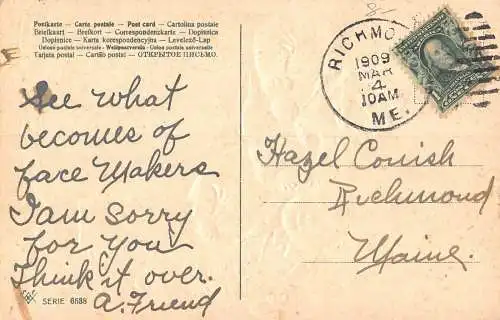 Postkarte - Carte postale - Post card - Cartolina postale
Briefkaart - Brefkort - Correspondenzkarte - Dopisnica
Dopisnice - Karta korespondencyjna - Levelező-Lap
Union postale universelle - Weltpostverein - Union postale universelle
Tarjeta postal - Cartão postal - ОТКРЫТОЕ ПИСЬМО.
RICHMOND
1909
MAR
4
10AM
ME.
See what
becomes of
face Makers
I am sorry
for you
Think it over.
A. Friend
Hazel Cornish
Richmond
Maine.
SERIE 6588